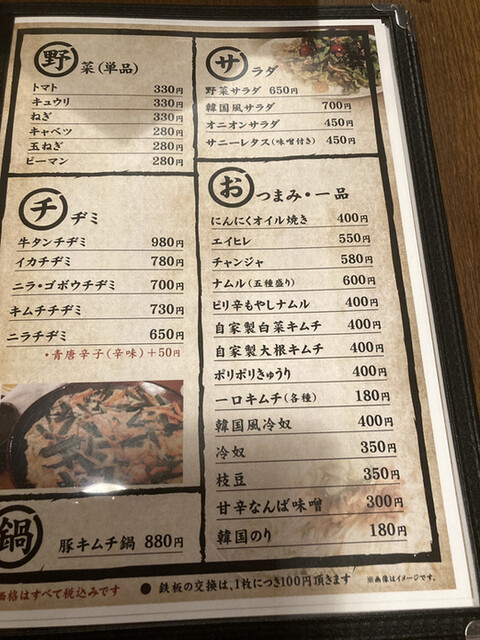 野菜(単品)
トマト 330円
キュウリ 330円
ねぎ 330円
キャベツ 280円
玉ねぎ 280円
ピーマン 280円
サラダ
野菜サラダ 650円
韓国風サラダ 700円
オニオンサラダ 450円
サニーレタス(味噌付き) 450円
チヂミ
牛タンチヂミ 980円
イカチヂミ 780円
ニラ・ゴボウチヂミ 700円
キムチチヂミ 730円
ニラチヂミ 650円
・青唐辛子(辛味)+50円
おつまみ・一品
にんにくオイル焼き 400円
エイヒレ 550円
チャンジャ 580円
ナムル(五種盛り) 600円
ピリ辛もやしナムル 400円
自家製白菜キムチ 400円
自家製大根キムチ 400円
ポリポリきゅうり 400円
一口キムチ(各種) 180円
韓国風冷奴 400円
冷奴 350円
枝豆 350円
甘辛なんば味噌 300円
韓国のり 180円
鍋
豚キムチ鍋 880円
価格はすべて税込みです
● 鉄板の交換は、1枚につき100円頂きます
※画像はイメージです。